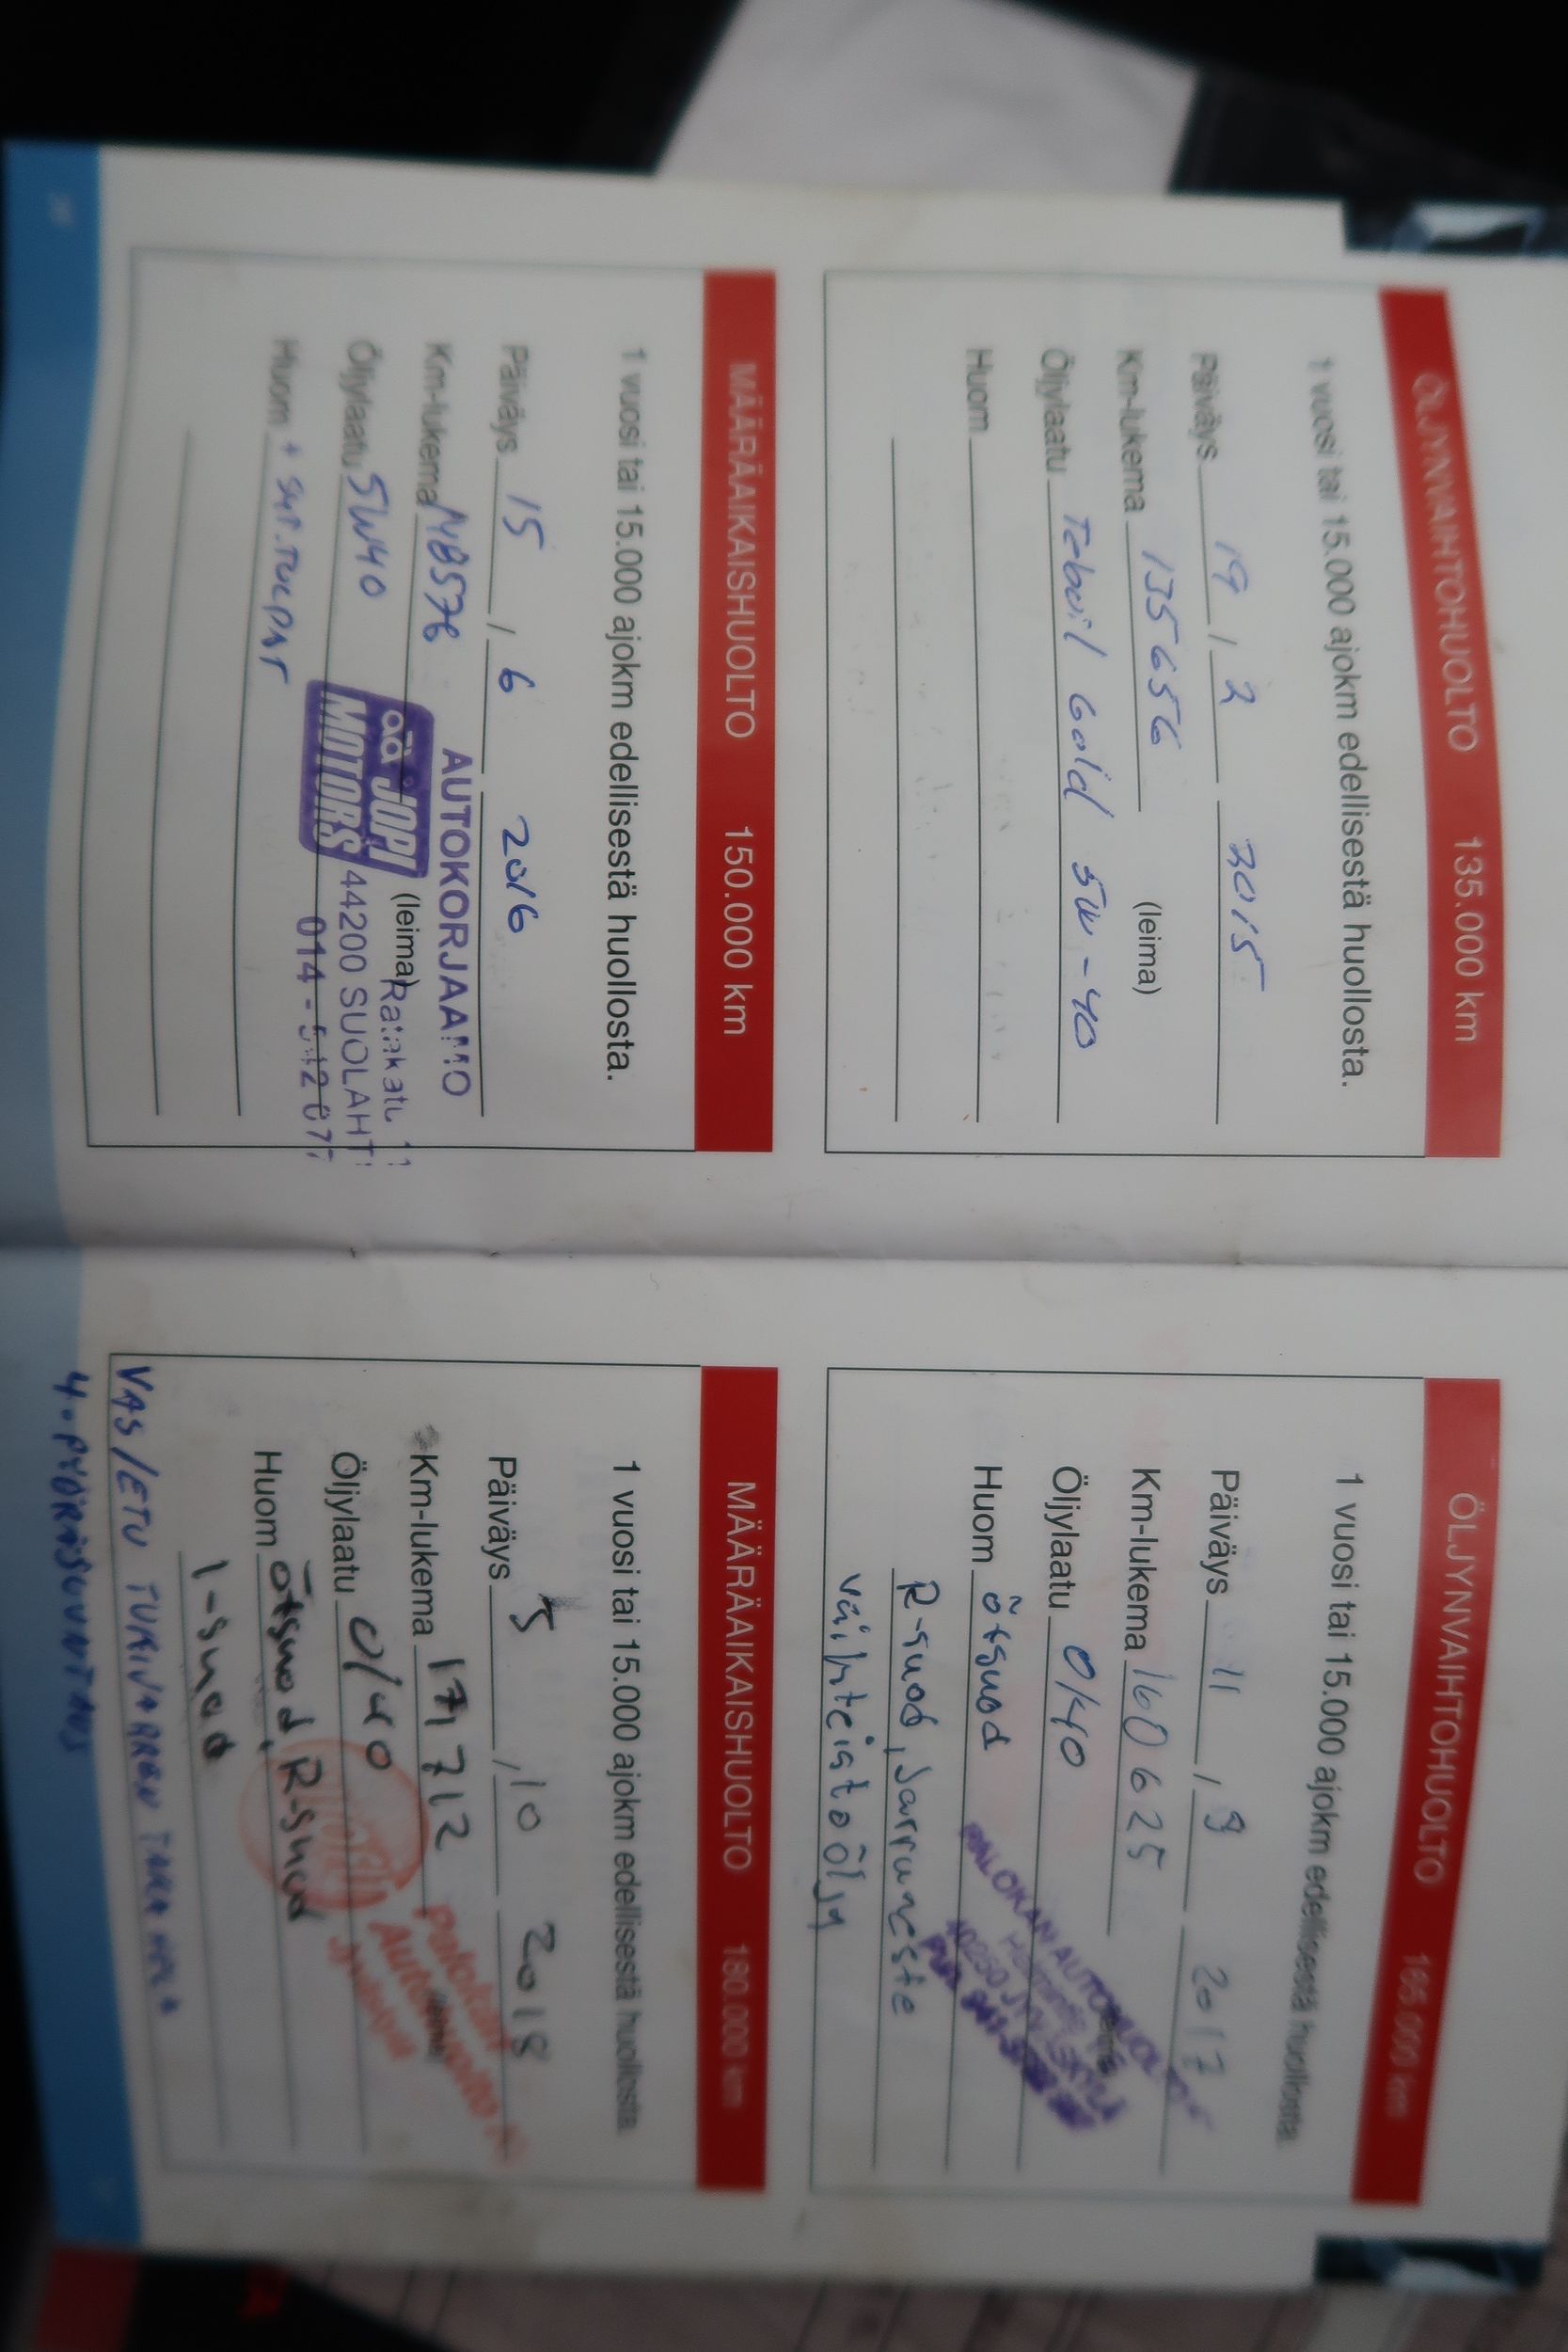 ÖLJYNVAIHTOHUOLTO 135.000 km
1 vuosi tai 15.000 ajokm edellisestä huollosta.
Päiväys 19 / 2 2015
Km-lukema 135656
(leima)
Öljylaatu Teboil Gold 5W-40
Huom
MÄÄRÄAIKAISHUOLTO 150.000 km
1 vuosi tai 15.000 ajokm edellisestä huollosta.
Päiväys 15 / 6 2016
Km-lukema
AUTOKORJAAMO
JOPI MOTORS
(leima) Ratakatu 11
Öljylaatu 5W40
44200 SUOLAHTI
014 - 542 077
Huom +
ÖLJYNVAIHTOHUOLTO 165.000 km
1 vuosi tai 15.000 ajokm edellisestä huollosta.
Päiväys 11 / 9 2017
Km-lukema 160625
PALOKAN AUTOHUOLTO
Öljylaatu 0/40
Huom ötsuod
R-suod, Jarruneste
vaihteistoöljy
MÄÄRÄAIKAISHUOLTO 180.000 km
1 vuosi tai 15.000 ajokm edellisestä huollosta.
Päiväys 5 / 10 2018
Km-lukema 171712
Palokan
Autohuolto
Öljylaatu 0/40
Huom ötsuod, R-suod
I-suod
VAS/ETU TUKIVARREN TAKA
4-PYÖRÄSUUNTAUS